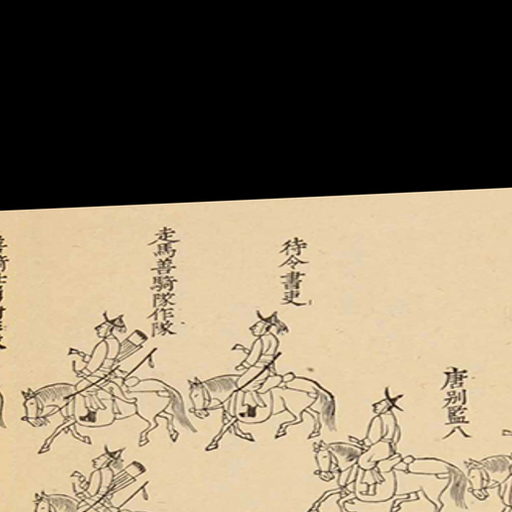 唐別監八
待令書吏
走馬善騎隊作隊